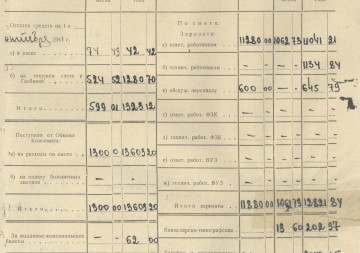 Остаток средств на 1-е
октября 1941 г.
а) в кассе 74 43 42 42
б) на текущем счете в Госбанке 524 58 1280 70
Итого 599 01 1323 12
Поступило от Обкома Комсомола:
а) на расходы по смете 1300 0 13609 20
б) на оплату больничных листков - - - -
Итого 1300 00 13609 20
За выданные комсомольские билеты - - 62 00
По смете.
Зарплата:
а) ответ. работникам 11280 00 1062 73 11041 21
б) технич. работник. - - - 1134 84
в) обслуж. персоналу 600 00 - - 645 79
г) ответ. работ. ФЗК - - -
д) технич. работ. ФЗК - - -
е) ответ. работ. ВУЗ - - -
ж) технич. работ. ВУЗ - - -
Итого зарплаты 11880 00 1062 73 12821 84
Канцелярско-типографские 13 60 202 97